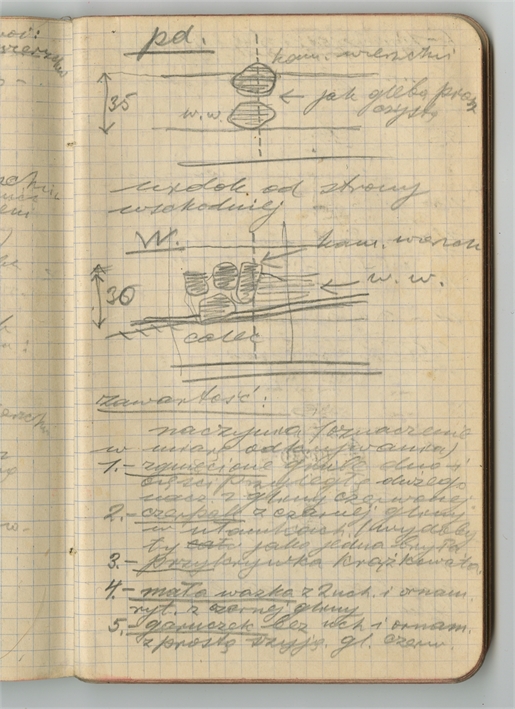 pd.
kam. wierzchni
35
jak gleba prasz
czystą
w. w.
widok od strony
wschodniej
W.
kam. wierzch
30
w. w.
calec
zawartość:
naczynia (oznaczenie
w miarę odkrywania)
1.- zgniecione grube dno i
części przyległe dużego
nacz. z gliny czerwonej
2.- czerpak z czarnej gliny
w ułamkach (wydoby
ty jako jedna bryła
3.- przykrywka krążkowata
4.- mała wazka z 2 uch. i ornam.
ryt. z czarnej gliny
5.- garnczek bez uch i ornam.
z prostą szyją. gl. czerw.